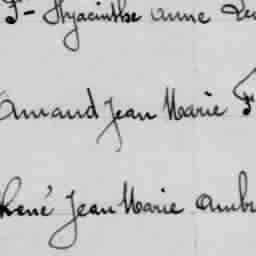 F- Hyacinthe Anne
Amand Jean Marie F
René Jean Marie Amb